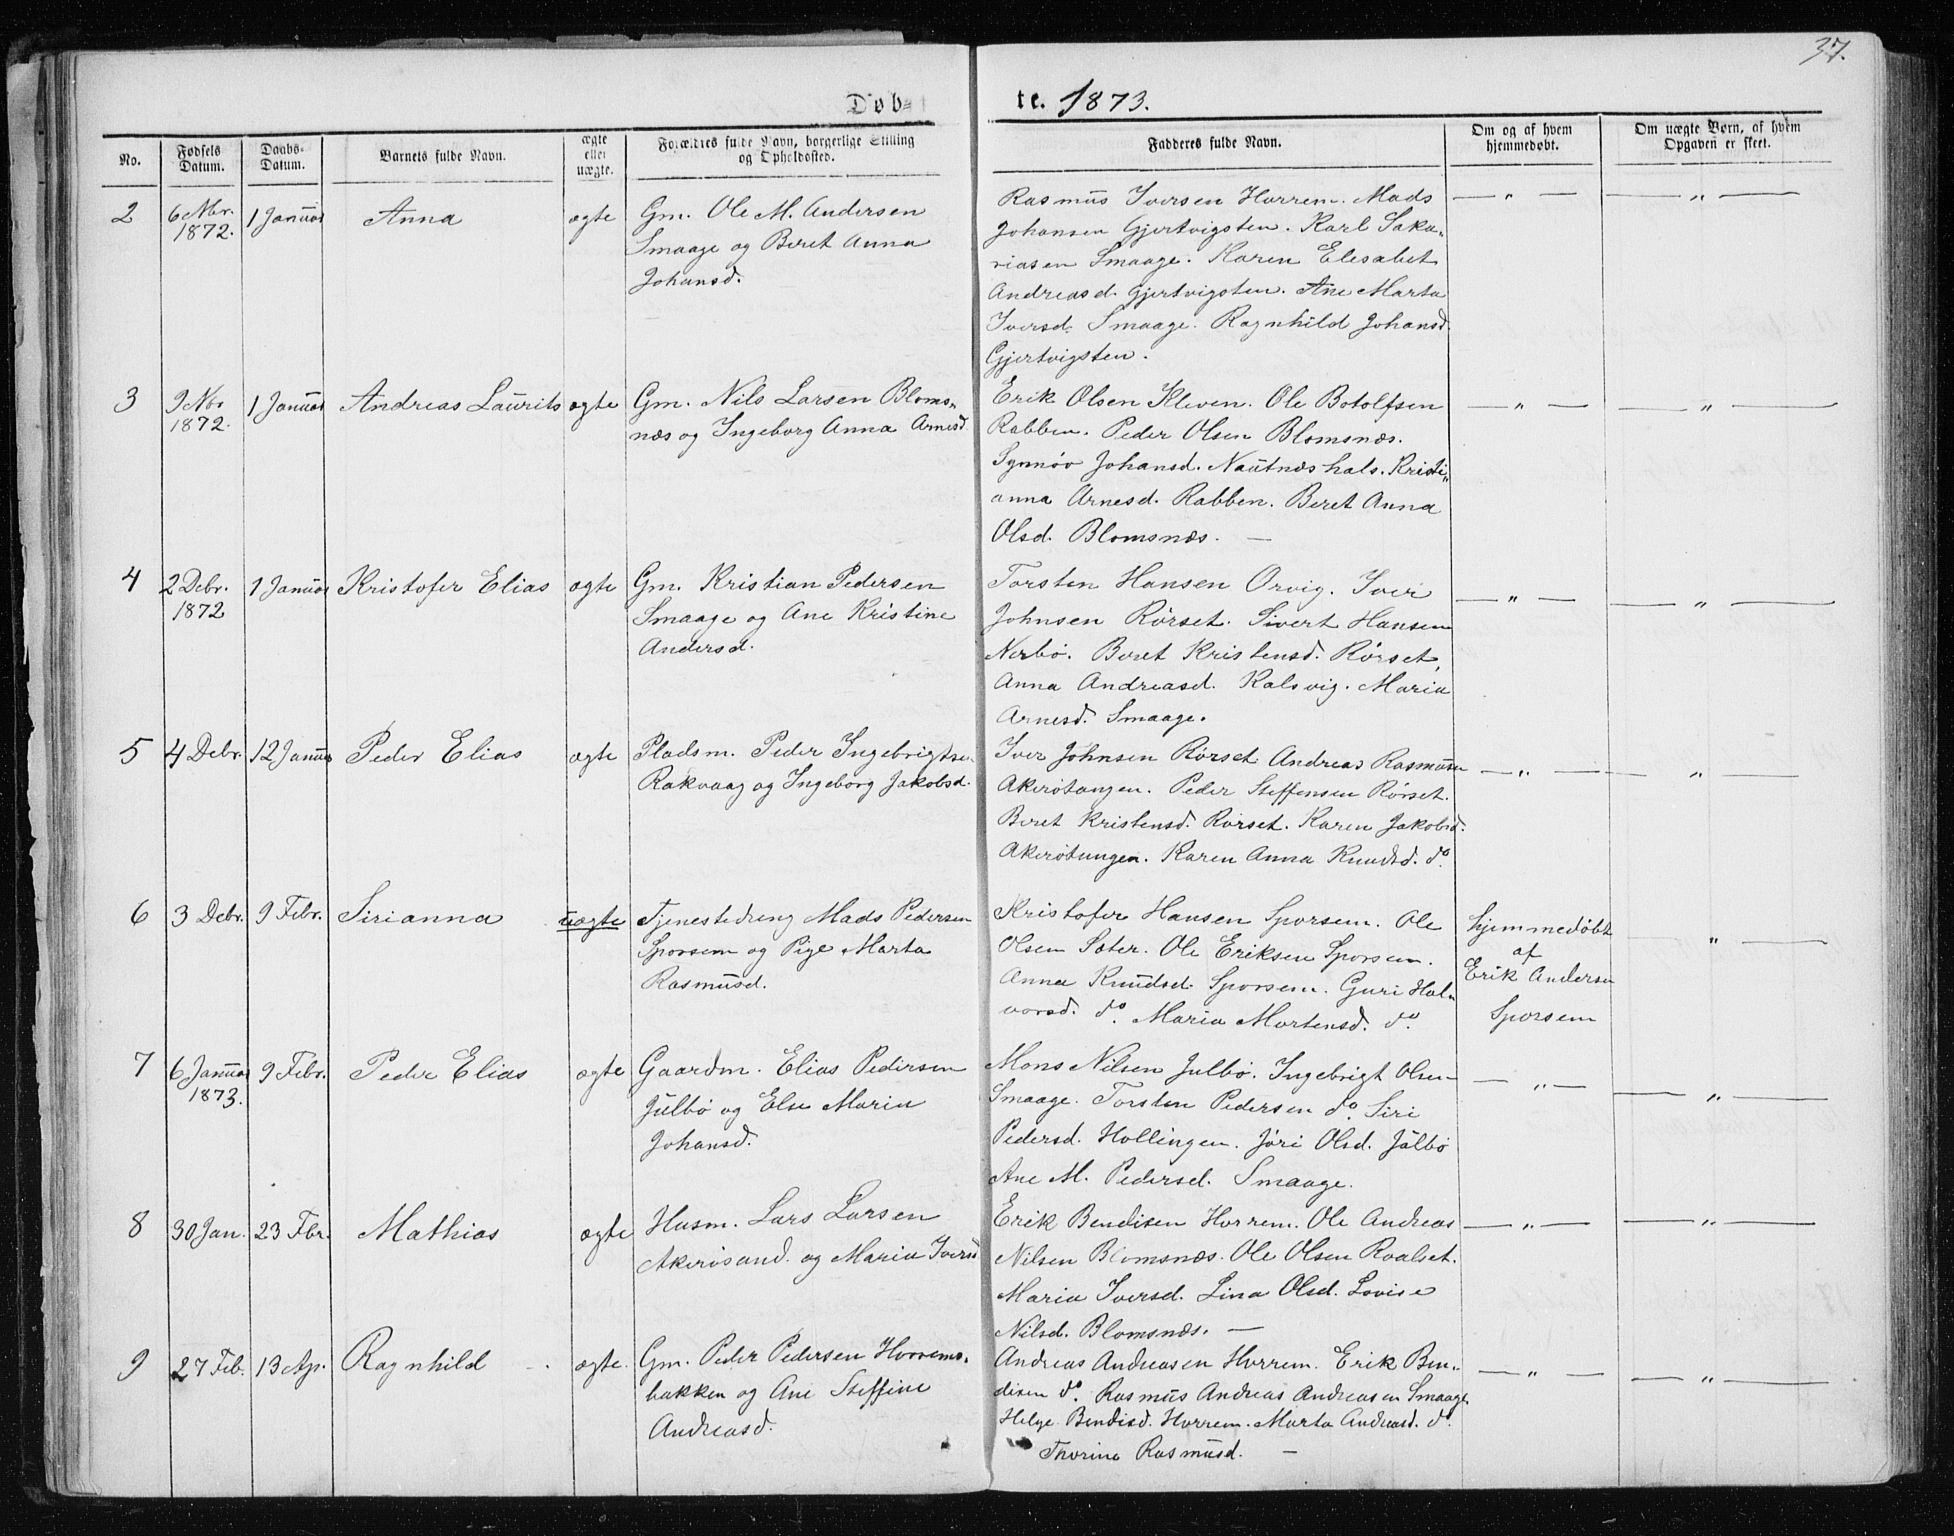 37.
Døb-
te. 1873.
No.
Fødsels Datum.
Daabs-Datum.
Barnets fulde Navn.
ægte eller uægte.
Forældres fulde Navn, borgerlige Stilling og Opholdssted.
Fadderes fulde Navn.
Om og af hvem hjemmedøbt.
Om uægte Børn, af hvem Opgaven er skeet.
2
6 Nbr.
1872.
1 Januar
Anna
ægte
Gm. Ole M. Andersen
Smaage og Beret Anna
Johansd.
Rasmus Iversen Horrem. Mads
Johansen Gjertvigsten. Karl Saka-
riasen Smaage. Karen Elesabet
Andreasd. Gjertvigsten. Ane Marta
Iversd. Smaage. Ragnhild Johansd.
Gjertvigsten.
— „ —
— „ —
3
9 Nbr
1872.
1 Januar
Andreas Laurits
ægte
Gm. Nils Larsen Bloms-
næs og Ingeborg Anna Arnesd.
Erik Olsen Kleven. Ole Botolfsen
Rabben. Peder Olsen Blomsnæs.
Synnøv Johansd. Nautneshals. Kristi-
anna Arnesd. Rabben. Beret Anna
Olsd. Blomsnæs. —
— „ —
— „ —
4
2 Debr.
1872
1 Januar
Kristofer Elias
ægte
Gm. Kristian Pedersen
Smaage og Ane Kristine
Andersd.
Torsten Hansen Orvig. Iver
Johnsen Rörset. Sivert Hansen
Nerbö. Beret Kristensd. Rörset,
Anna Andreasd. Kalsvig. Maria
Arnesd. Smaage.
— „ —
— „ —
5
4 Debr.
12 Januar
Peder Elias
ægte
Pladsm. Peder Ingebrigtsen
Rakvaag og Ingeborg Jakobsd.
Iver Johnsen Rörset. Andreas Rasmusen
Akerötangen. Peder Steffensen Rörset.
Beret Kristensd. Rörset. Karen Jakobsd.
Akerötangen. Karen Anna Knudsd. do.
— „ —
— „ —
6
3 Debr.
9 Febr.
Sirianna
uægte
Tjenestedreng Mads Pedersen
Sporsem og Pige Marta
Rasmusd.
Kristofer Hansen Sporsem. Ole
Olsen Sæter. Ole Eriksen Sporsem.
Anna Knudsd. Sporsem. Guri Hal-
vorsd. do. Maria Mortensd. do.
hjemmedøbt
af
Erik Andersen
Sporsem
— „ —
7
6 Januar
1873.
9 Febr.
Peder Elias
ægte
Gaardm. Elias Pedersen
Julbö og Else Maria
Johansd.
Mons Nilsen Julbö. Ingebrigt Olsen
Smaage. Torsten Pedersen do. Siri
Pedersd. Hollingen. Jöri Olsd. Julbö
Ane M. Pedersd. Smaage.
— „ —
— „ —
8
30 Jan.
23 Fbr.
Mathias
ægte
Husm. Lars Larsen
Akerösand. og Maria Iversd
Erik Bendisen Horrem. Ole Andreas
Nilsen Blomsnæs. Ole Olsen Roalset.
Maria Iversd. Lina Olsd. Lovise
Nilsd. Blomsnæs. —
— „ —
— „ —
9
27 Feb.
13 Ap.
Ragnhild
ægte.
Gm. Peder Pedersen Horrems-
bakken og Ane Steffine
Andreasd.
Andreas Andreasen Horrem. Erik Ben-
disen do. Rasmus Andreas Andreasen Smaage.
Helge Bendisd. Horrem. Marta Andreasd. do.
Thorine Rasmusd. —
— „ —
— „ —